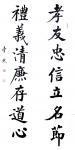 孝友忠信立名節
禮義清廉存道心